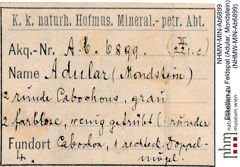 K. k. naturh. Hofmus. Mineral.-petr. Abt.
Akq.-Nr. A.b. 6899.
Name Adular (Mondstein)
2 runde Cabochons, grau
2 farblose, wenig getrübt (1 runder
Fundort Cabochon, 1 rechteck. Doppel-
4.
NHMW-MIN-Ab6899
Feldspat (Adular, Mondstein)
(NHMW-MIN-Ab6899)
nhm
museum wien